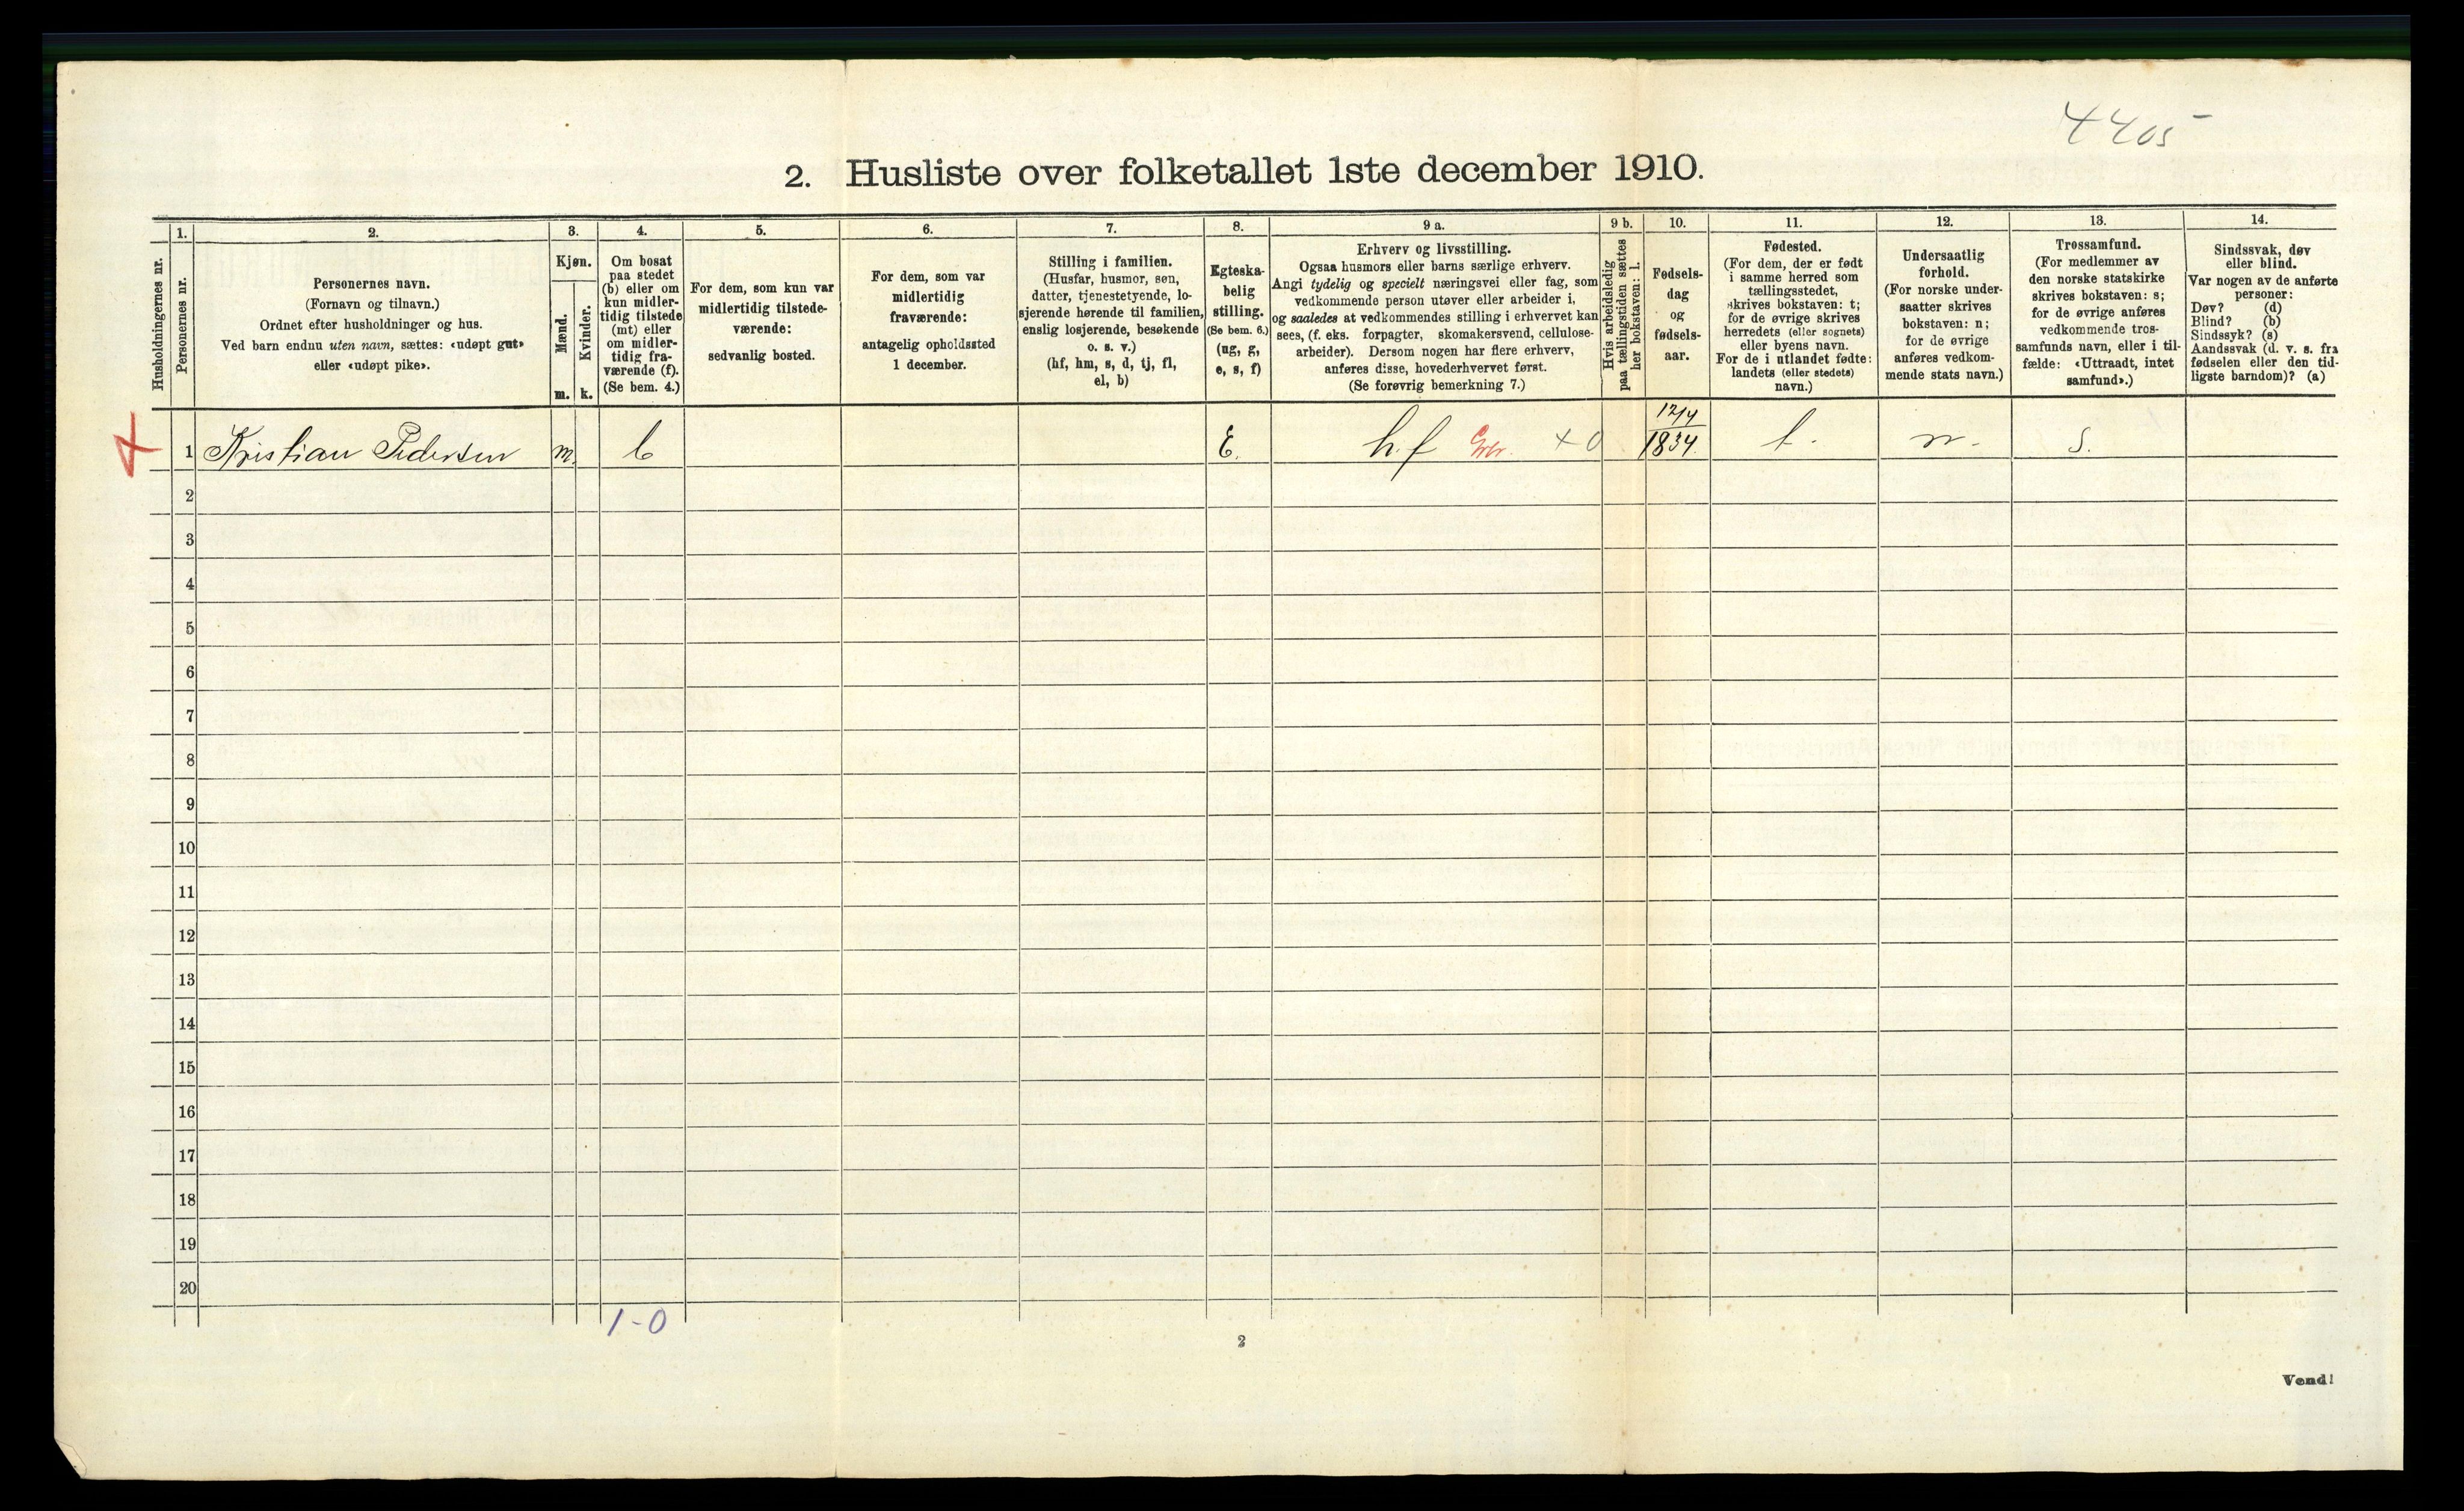 4405
2. Husliste over folketallet 1ste december 1910.
Husholdningernes nr.
1.
Personernes nr.
2.
Personernes navn.
(Fornavn og tilnavn.)
Ordnet efter husholdninger og hus.
Ved barn endnu uten navn, sættes: «udøpt gut»
eller «udøpt pike».
3.
Kjøn.
Mænd.
m.
Kvinder.
k.
4.
Om bosat
paa stedet
(b) eller om
kun midler-
tidig tilstede
(mt) eller
om midler-
tidig fra-
værende (f).
(Se bem. 4.)
5.
For dem, som kun var
midlertidig tilstede-
værende:
sedvanlig bosted.
6.
For dem, som var
midlertidig
fraværende:
antagelig opholdssted
1 december.
7.
Stilling i familien.
(Husfar, husmor, søn,
datter, tjenestetyende, lo-
sjerende hørende til familien,
enslig losjerende, besøkende
o. s. v.)
(hf, hm, s, d, tj, fl,
el, b)
8.
Egteska-
belig
stilling.
(Se bem. 6.)
(ug, g,
e, s, f)
9 a.
Erhverv og livsstilling.
Ogsaa husmors eller barns særlige erhverv.
Angi tydelig og specielt næringsvei eller fag, som
vedkommende person utøver eller arbeider i,
og saaledes at vedkommendes stilling i erhvervet kan
sees, (f. eks. forpagter, skomakersvend, cellulose-
arbeider). Dersom nogen har flere erhverv,
anføres disse, hovederhvervet først.
(Se forøvrig bemerkning 7.)
9 b.
Hvis arbeidsledig
paa tællingstiden sættes
her bokstaven: l.
10.
Fødsels-
dag
og
fødsels-
aar.
11.
Fødested.
(For dem, der er født
i samme herred som
tællingsstedet,
skrives bokstaven: t;
for de øvrige skrives
herredets (eller sognets)
eller byens navn.
For de i utlandet fødte:
landets (eller stedets)
navn.)
12.
Undersaatlig
forhold.
(For norske under-
saatter skrives
bokstaven: n;
for de øvrige
anføres vedkom-
mende stats navn.)
13.
Trossamfund.
(For medlemmer av
den norske statskirke
skrives bokstaven: s;
for de øvrige anføres
vedkommende tros-
samfunds navn, eller i til-
fælde: «Uttraadt, intet
samfund».)
14.
Sindssvak, døv
eller blind.
Var nogen av de anførte
personer:
Døv? (d)
Blind? (b)
Sindssyk? (s)
Aandssvak (d. v. s. fra
fødselen eller den tid-
ligste barndom)? (a)
1 Kristian Pedersen m. b E. h.f x 0 12/4 1834. t. n. s.
2
3
4
5
6
7
8
9
10
11
12
13
14
15
16
17
18
19
20
1-0
2
Vend!